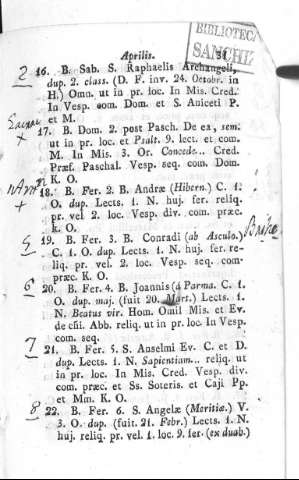 BIBLIOTECA
SANCHE
Aprilis. 31
2 16. B. Sab. S. Raphaelis Archangeli,
dup. 2. class. (D. F. inv. 24. Octobr. in
H.) Omn. ut in pr. loc. In Mis. Cred.
In Vesp. com. Dom. et S. Aniceti P.
et M.
17. B. Dom. 2. post Pasch. De ea, sem.
ut in pr. loc. et Psalt. 9. lect. et com.
M. In Mis. 3. Or. Concede... Cred.
Præf. Paschal. Vesp. seq. com. Dom.
K. O.
18. B. Fer. 2. B. Andræ (Hibern.) C. 1.
O. dup. Lects. 1. N. huj. fer. reliq.
pr. vel 2. loc. Vesp. div. com. præc.
k. O.
5 19. B. Fer. 3. B. Conradi (ab Asculo.)
C. 1. O. dup. Lects. 1. N. huj. fer. re-
liq. pr. vel 2. loc. Vesp. seq. com-
præc. K. O.
6 20. B. Fer. 4. B. Joannis (á Parma. C. 1.
O. dup. maj. (fuit 20. Mart.) Lects. 1.
N. Beatus vir. Hom. Omil Mis. et Ev.
de cñi. Abb. reliq. ut in pr. loc. In Vesp.
com. seq.
7 21. B. Fer. 5. S. Anselmi Ev. C. et D.
dup. Lects. 1. N. Sapientiam... reliq. ut
in pr. loc. In Mis. Cred. Vesp. div.
com. præc. et Ss. Soteris. et Caji Pp.
et Mm. K. O.
8 22. B. Fer. 6. S. Angelæ (Meritiæ.) V.
3. O. dup. (fuit. 21. Febr.) Lects. 1. N.
huj. reliq. pr. vel 1. loc. 9. fer. (ex duab.)